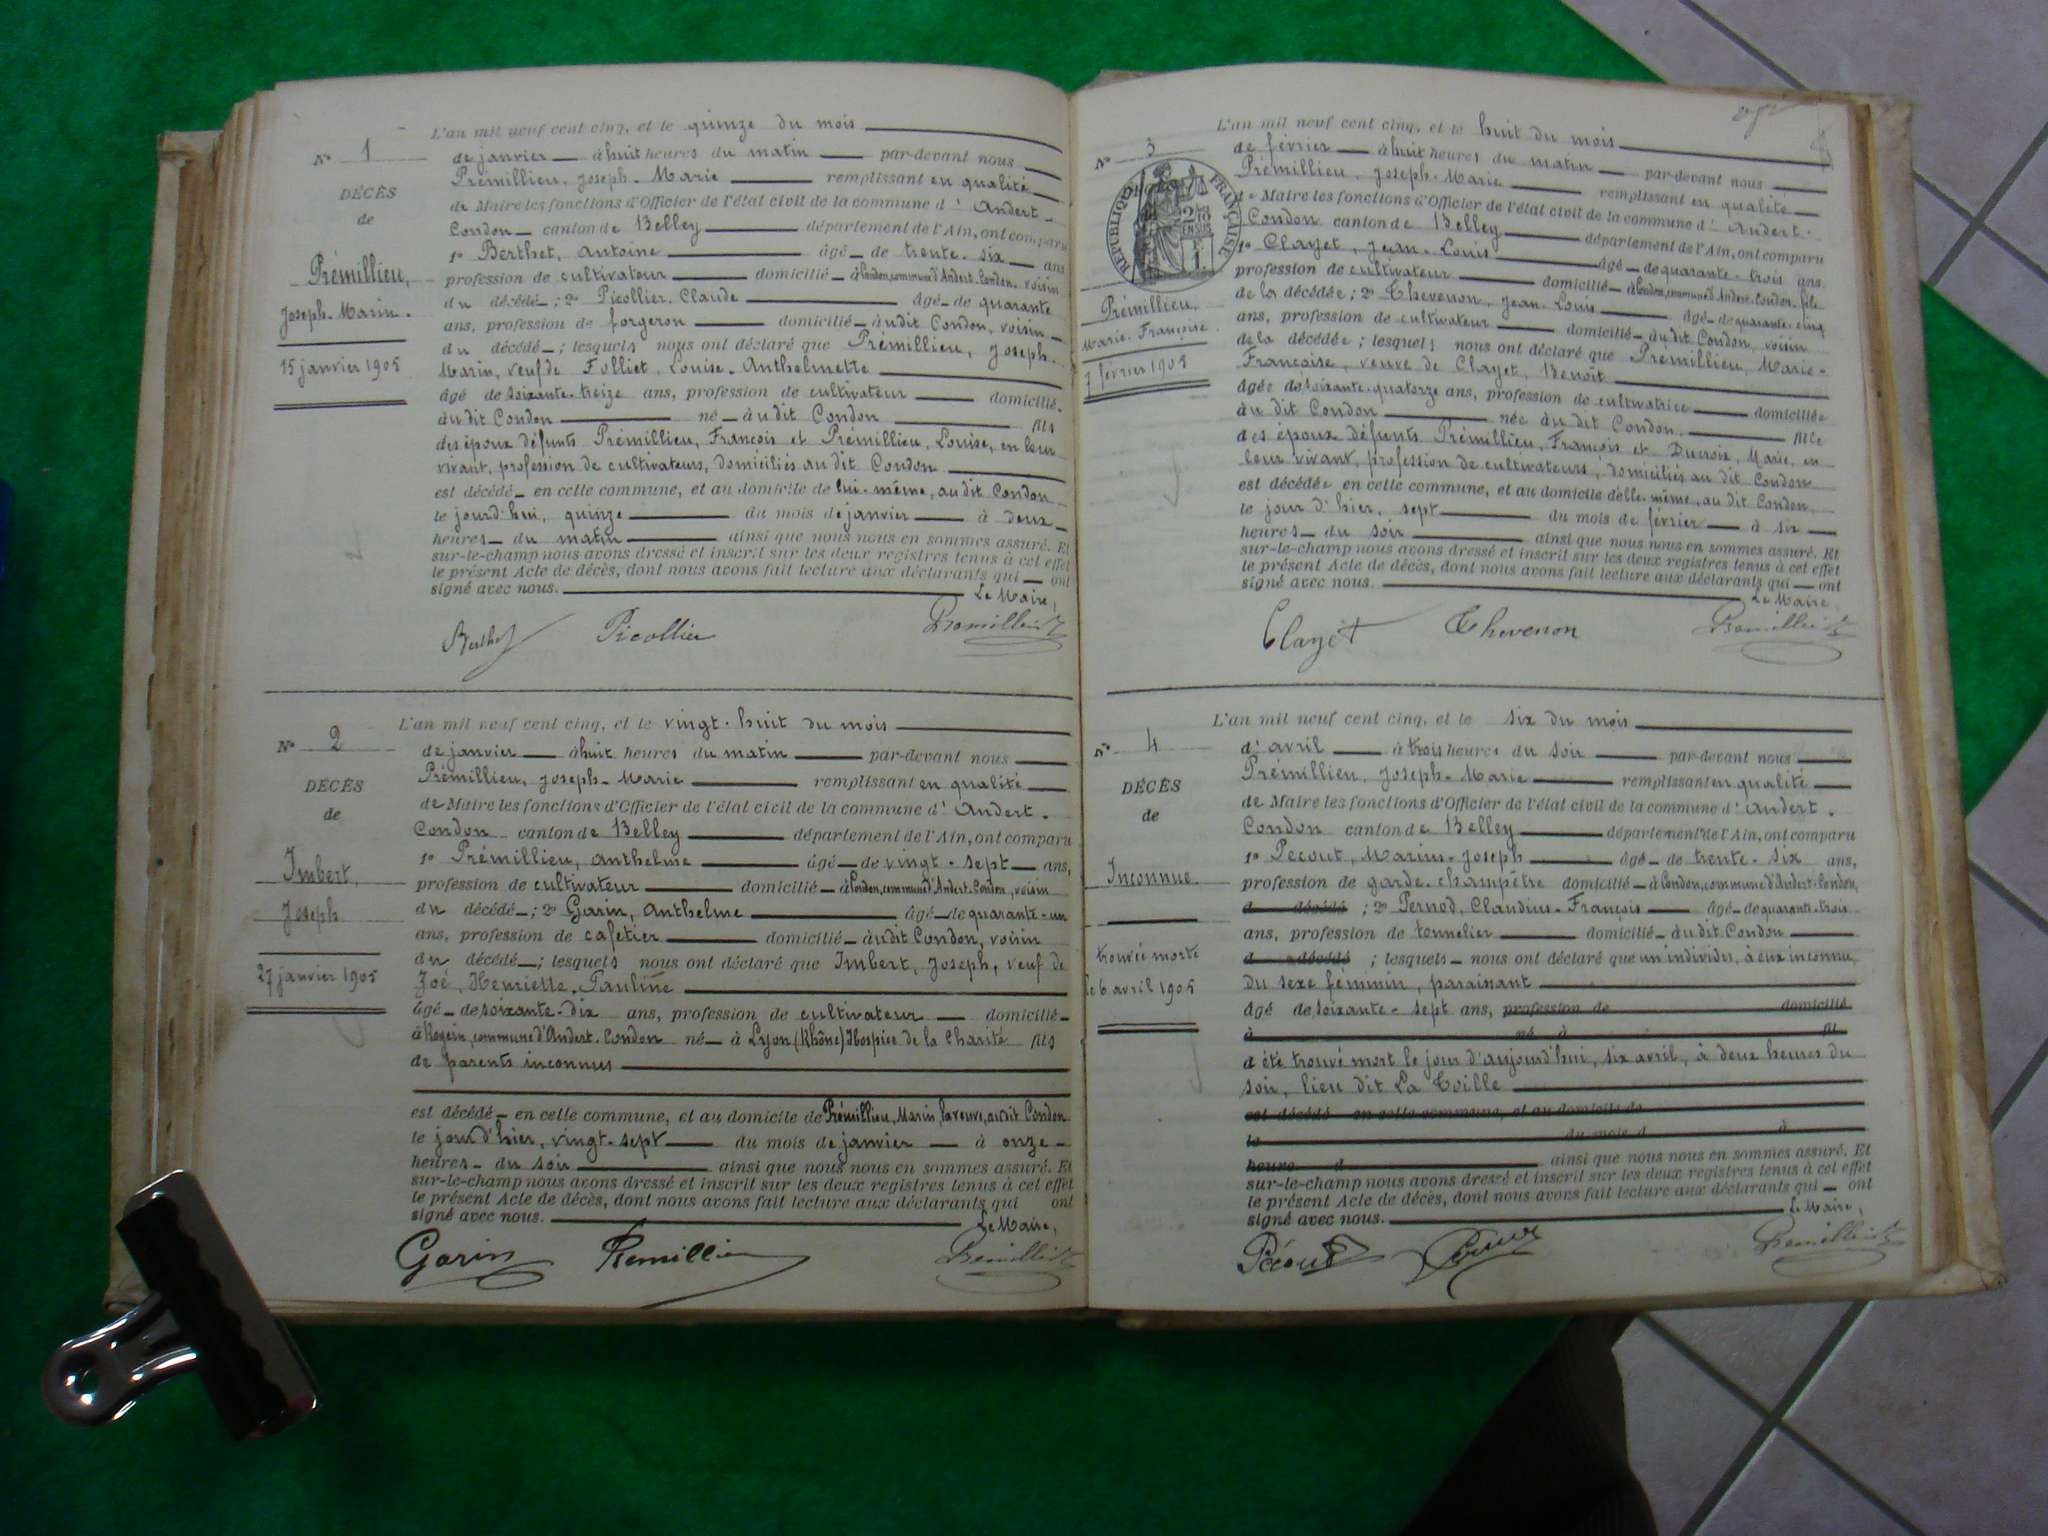 N° 1
DÉCÈS
de
Prémillieu,
Joseph-Marin.
15 janvier 1905
L'an mil neuf cent cinq, et le quinze du mois
de janvier à huit heures du matin par-devant nous
Prémillieu, Joseph-Marie remplissant en qualité
de Maire les fonctions d'Officier de l'état civil de la commune d'Andert-
Condon canton de Belley département de l'Ain, ont comparu
1° Berthet, Antoine âgé de trente-six ans
profession de cultivateur domicilié à Condon, commune d'Andert-Condon, voisin
du décédé ; 2° Picollier, Claude âgé de quarante
ans, profession de forgeron domicilié audit Condon, voisin
du décédé ; lesquels nous ont déclaré que Prémillieu, Joseph-
Marin, veuf de Folliet, Louise-Anthelmette
âgé de soixante-treize ans, profession de cultivateur domicilié
au dit Condon né au dit Condon fils
des époux défunts Prémillieu, François et Prémillieu, Louise, en leur
vivant, profession de cultivateurs, domiciliés au dit Condon
est décédé en cette commune, et au domicile de lui-même, au dit Condon
le jourd'hui, quinze du mois de janvier à deux
heures du matin ainsi que nous nous en sommes assuré. Et
sur-le-champ nous avons dressé et inscrit sur les deux registres tenus à cet effet
le présent Acte de décès, dont nous avons fait lecture aux déclarants qui ont
signé avec nous. Le Maire,
Berthet Picollier Prémillieu
N° 2
DÉCÈS
de
Imbert,
Joseph
27 janvier 1905
L'an mil neuf cent cinq, et le vingt-huit du mois
de janvier à huit heures du matin par-devant nous
Prémillieu, Joseph-Marie remplissant en qualité
de Maire les fonctions d'Officier de l'état civil de la commune d'Andert-
Condon canton de Belley département de l'Ain, ont comparu
1° Prémillieu, Anthelme âgé de vingt-sept ans,
profession de cultivateur domicilié à Condon, commune d'Andert-Condon, voisin
du décédé ; 2° Garin, Anthelme âgé de quarante-un
ans, profession de cafetier domicilié audit Condon, voisin
du décédé ; lesquels nous ont déclaré que Imbert, Joseph, veuf de
Zoé, Henriette-Pauline
âgé de soixante-dix ans, profession de cultivateur domicilié
à Rogein, commune d'Andert-Condon né à Lyon (Rhône) Hospice de la Charité fils
de parents inconnus
est décédé en cette commune, et au domicile de Prémillieu, Marin, la veuve, audit Condon
le jour d'hier, vingt-sept du mois de janvier à onze
heures du soir ainsi que nous nous en sommes assuré. Et
sur-le-champ nous avons dressé et inscrit sur les deux registres tenus à cet effet
le présent Acte de décès, dont nous avons fait lecture aux déclarants qui ont
signé avec nous. Le Maire,
Garin Prémillieu Prémillieu
N° 3
RÉPUBLIQUE FRANÇAISE
Prémillieu,
Marie-Françoise.
7 février 1905
L'an mil neuf cent cinq, et le huit du mois
de février à huit heures du matin par-devant nous
Prémillieu, Joseph-Marie remplissant en qualité
de Maire les fonctions d'Officier de l'état civil de la commune d'Andert-
Condon canton de Belley département de l'Ain, ont comparu
1° Clayet, Jean-Louis âgé de quarante-trois ans.
profession de cultivateur domicilié à Condon, commune d'Andert-Condon, fils
de la décédée ; 2° Thevenon, Jean-Louis âgé de quarante-cinq
ans, profession de cultivateur domicilié au dit Condon, voisin
de la décédée ; lesquels nous ont déclaré que Prémillieu, Marie-
Françoise, veuve de Clayet, Benoît
âgée de soixante-quatorze ans, profession de cultivatrice domiciliée
au dit Condon née au dit Condon fille
des époux défunts Prémillieu, François et Ducroix, Marie, en
leur vivant, profession de cultivateurs, domiciliés au dit Condon
est décédée en cette commune, et au domicile d'elle-même, au dit Condon,
le jour d'hier, sept du mois de février à six
heures du soir ainsi que nous nous en sommes assuré. Et
sur-le-champ nous avons dressé et inscrit sur les deux registres tenus à cet effet
le présent Acte de décès, dont nous avons fait lecture aux déclarants qui ont
signé avec nous. Le Maire,
Clayet Thevenon Prémillieu
N° 4
DÉCÈS
de
Inconnue
trouvée morte
le 6 avril 1905
L'an mil neuf cent cinq, et le six du mois
d'avril à trois heures du soir par-devant nous
Prémillieu, Joseph-Marie remplissant en qualité
de Maire les fonctions d'Officier de l'état civil de la commune d'Andert-
Condon canton de Belley département de l'Ain, ont comparu
1° Pecout, Marius-Joseph âgé de trente-six ans,
profession de garde-champêtre domicilié à Condon, commune d'Andert-Condon,
d décédé ; 2° Pernod, Claudius-François âgé de quarante-trois
ans, profession de tonnelier domicilié au dit Condon
d décédé ; lesquels nous ont déclaré que un individu, à eux inconnu,
du sexe féminin, paraissant
âgé de soixante-sept ans, profession de domicilié
à né à fil
a été trouvé mort le jour d'aujourd'hui, six avril, à deux heures du
soir, lieu dit La Toille
est décédé en cette commune, et au domicile de
le du mois d à
heure d ainsi que nous nous en sommes assuré. Et
sur-le-champ nous avons dressé et inscrit sur les deux registres tenus à cet effet
le présent Acte de décès, dont nous avons fait lecture aux déclarants qui ont
signé avec nous. Le Maire,
Pécout Prémillieu